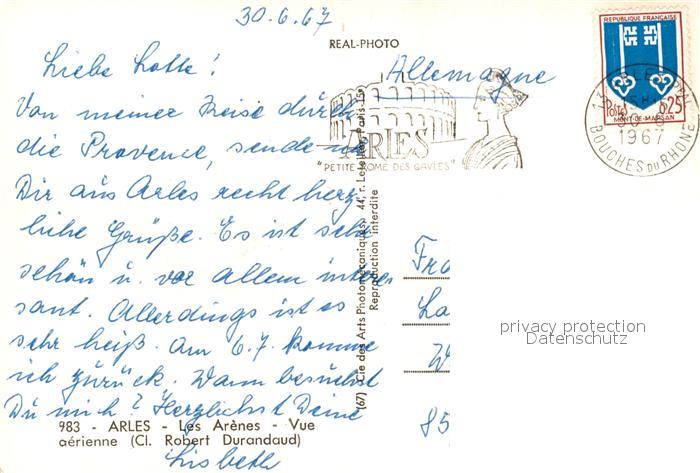 30.6.67
REAL-PHOTO
Allemagne
Liebe Lotte!
Von meiner Reise durch
die Provence, sende ich
Dir aus Arles recht herz
liche Grüße. Es ist sehr
schön u. vor allem interes
sant. Allerdings ist es
sehr heiß. Am 6.7. komme
ich zurück. Wann besuchst
Du mich? Herzlichst Deine
Lisbeth
983 - ARLES - Les Arènes - Vue
aérienne (Cl. Robert Durandaud)
(67) Cie des Arts Photomécaniques, 44, r. Letellier, Paris 15e
Reproduction interdite
ARLES
"PETITE ROME DES GAULES"
REPUBLIQUE FRANÇAISE
POSTES 0,25
MONT-DE-MARSAN
1967
BOUCHES DU RHONE
Fra
La
W
85
privacy protection
Datenschutz